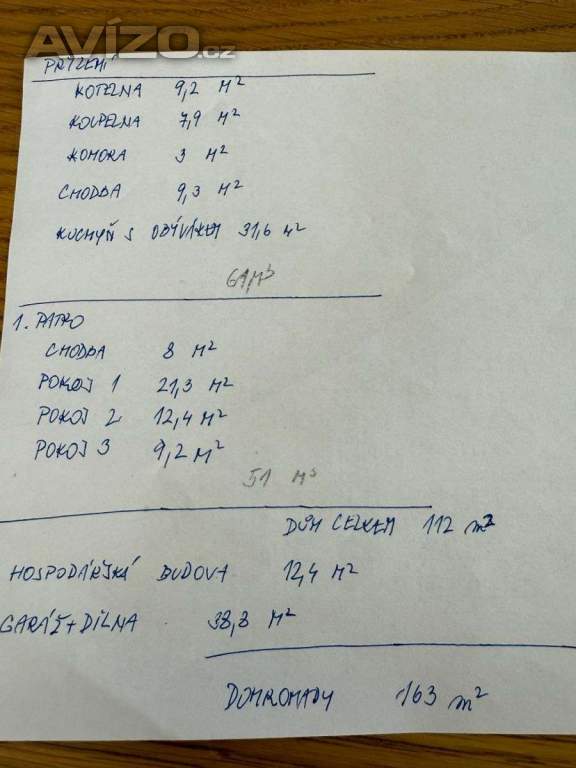 AVÍZO.cz
PŘÍZEMÍ
KOTELNA 9,2 M²
KOUPELNA 7,9 M²
KOMORA 3 M²
CHODBA 9,3 M²
KUCHYŇ S OBÝVÁKEM 31,6 M²
61 M³
1. PATRO
CHODBA 8 M²
POKOJ 1 21,3 M²
POKOJ 2 12,4 M²
POKOJ 3 9,2 M²
51 M³
DŮM CELKEM 112 m²
HOSPODÁŘSKÁ BUDOVA 12,4 M²
GARÁŽ + DÍLNA 38,8 M²
DOHROMADY 163 m²